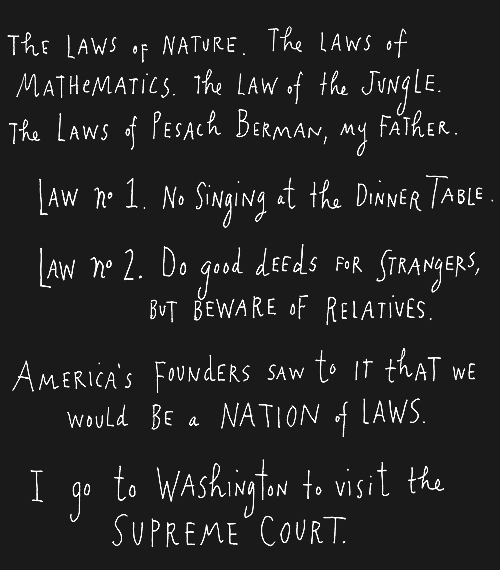 The LAWS of NATURE. The LAWS of
MATHeMATiCS. The LAW of the JUNgLE.
The LAWS of PESACh BERMAN, my FATHER.
LAW nº 1. No SiNgiNg at the DiNNER TABLE.
LAW nº 2. Do good dEEds FoR STRANgERS,
BUT BEWARE oF RELATiVES.
AMERiCA's FoUNdERS SAW to IT thAT WE
WoULd BE a NATION of LAWS.
I go to WAShiNgToN to visit the
SUPREME COURT.